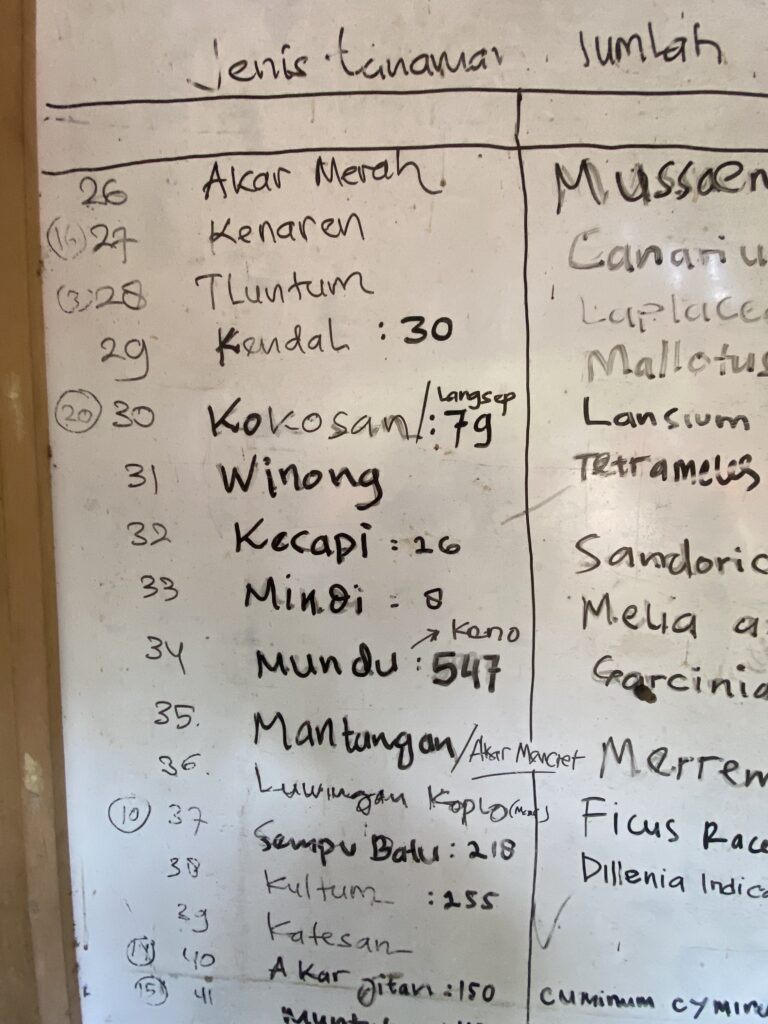 Jenis tanaman Jumlah
26 Akar Merah Mussaen
(16) 27 Kenaren Canariu
(3) 28 TLuntum Laplacea
29 Kendal : 30 Mallotus
(20) 30 Kokosan / Langsep : 79 Lansium
31 Winong Tetrameles
32 Kecapi : 26 Sandoric
33 Mindi : 8 Melia a
34 Mundu : 547 → Keno Garcinia
35. Mantangan / Akar Mencret Merrem
36. Luwingan Koplo Ficus Race
(10) 37 Sempu Batu : 218 Dillenia Indica
38 Kultum : 255
39 Katesan
40 Akar jitan : 150 cuminum cyminu
(15) 41